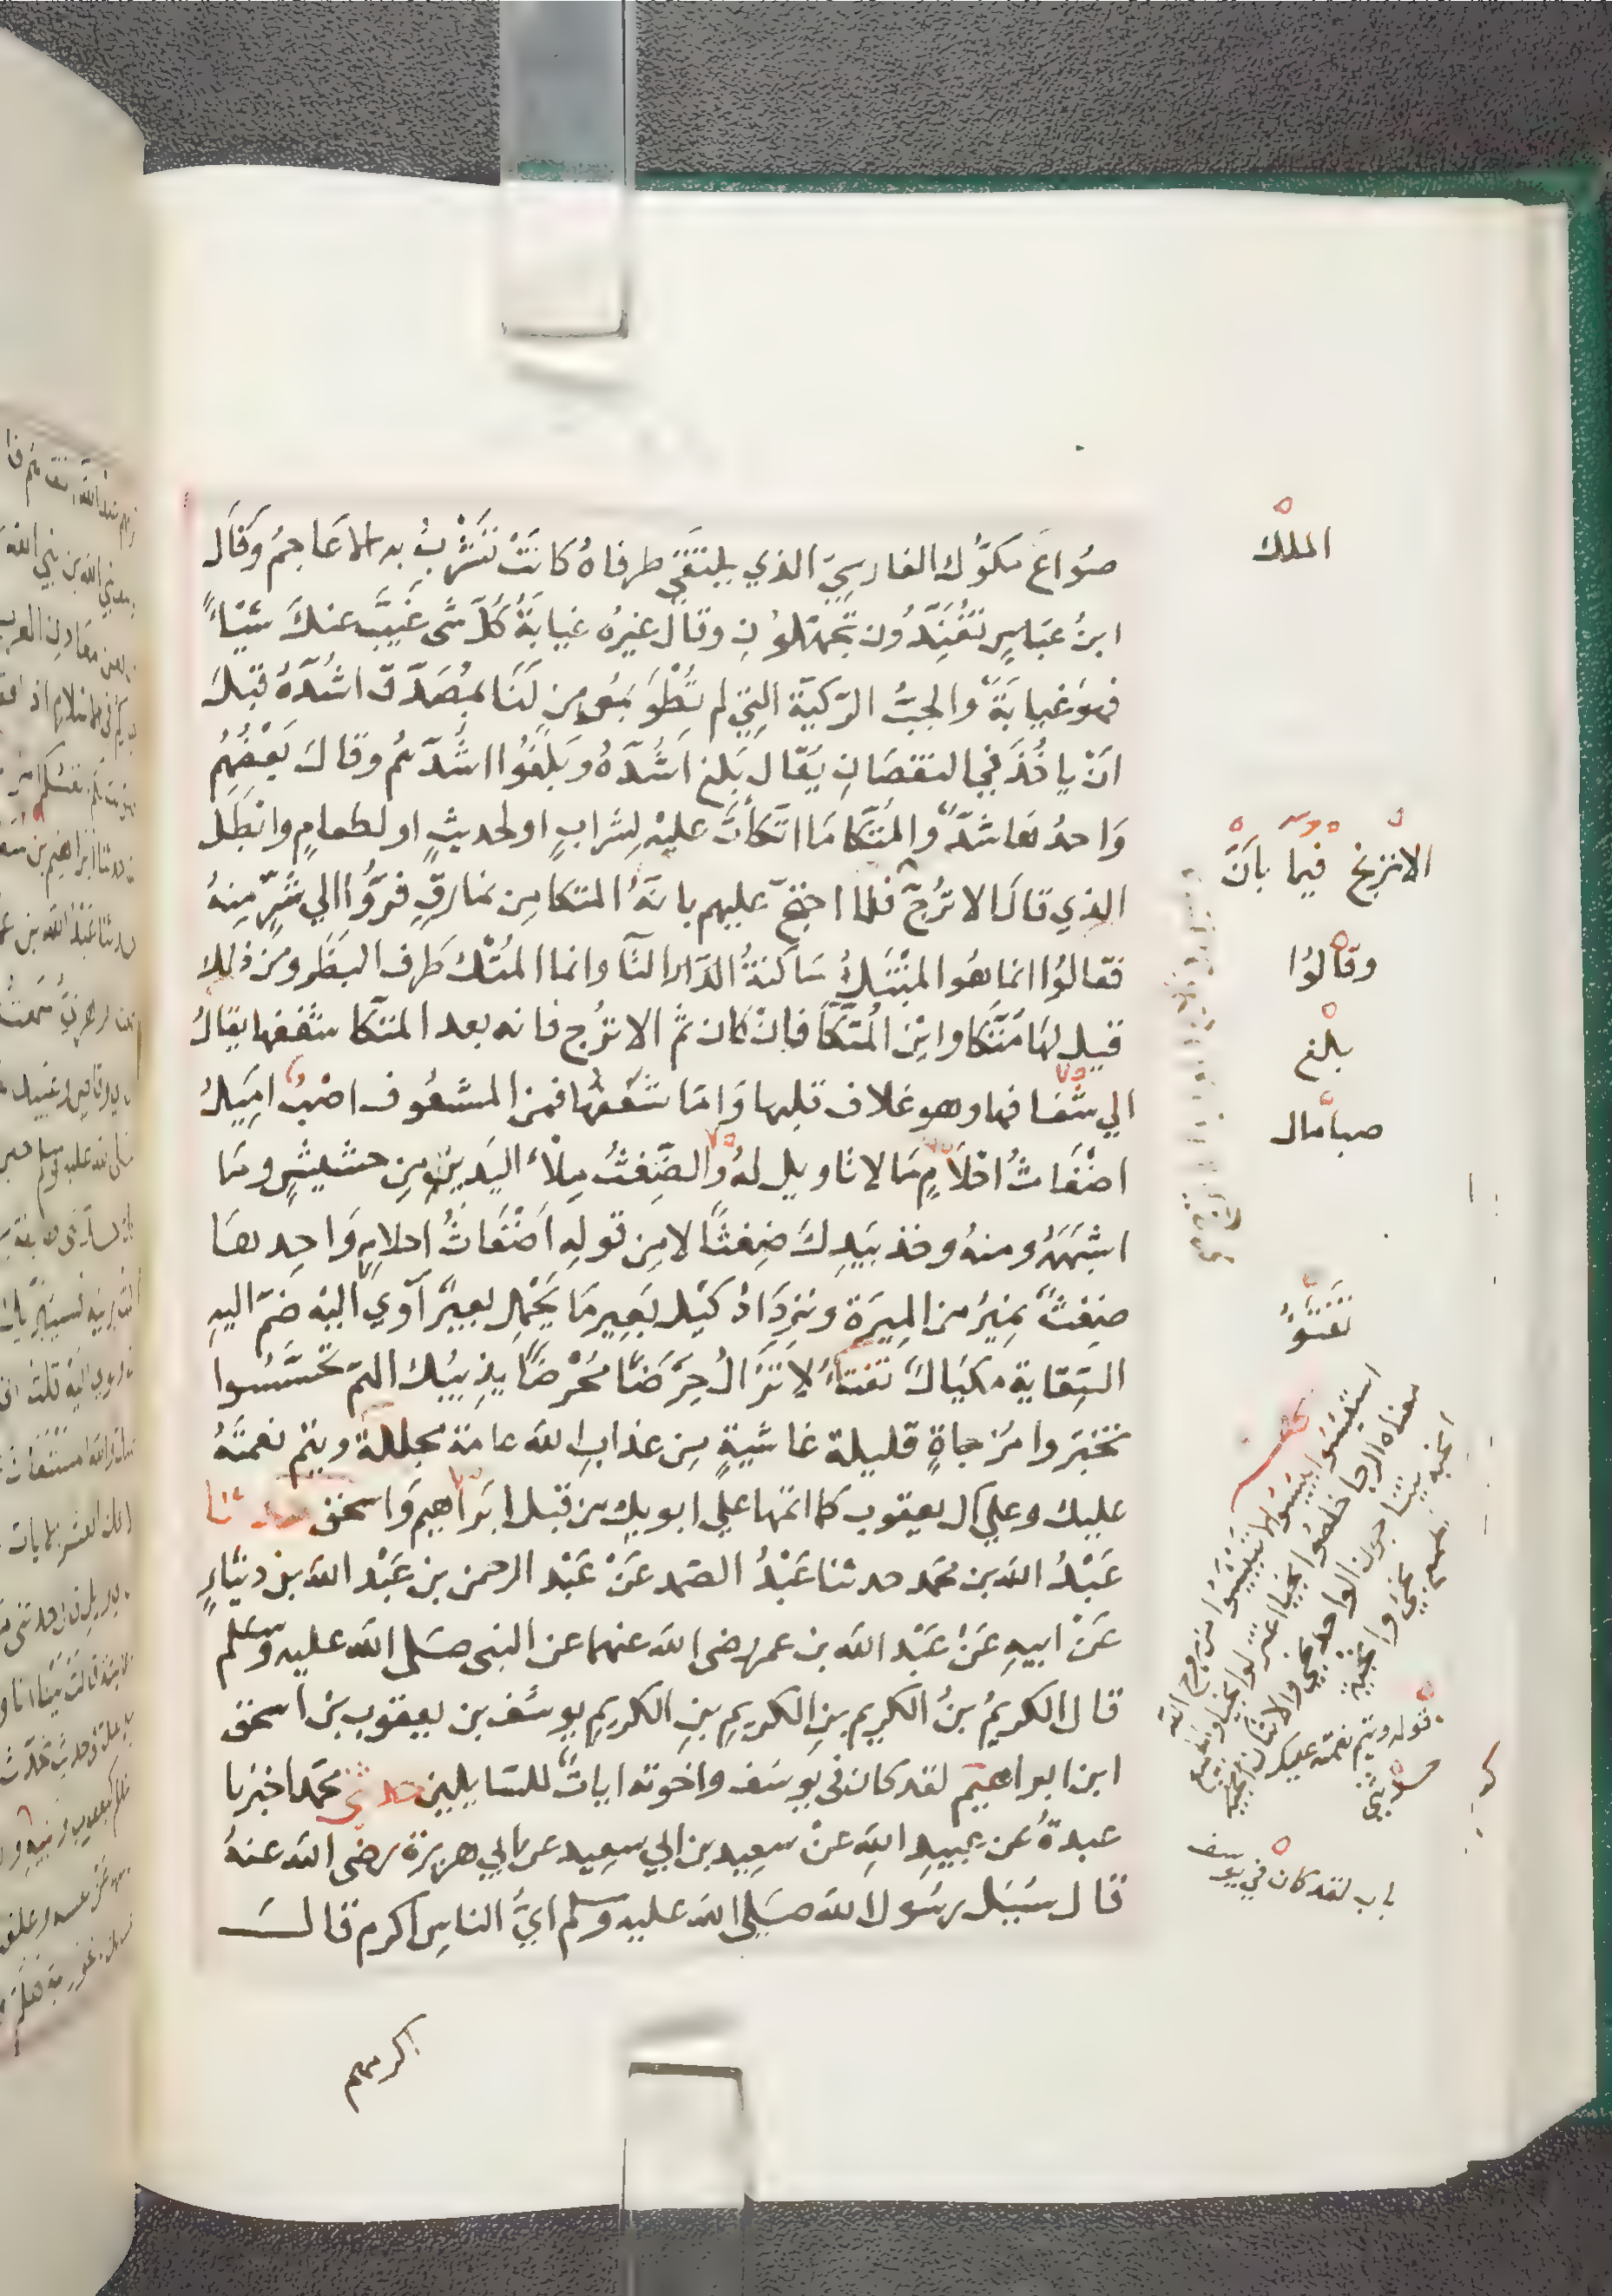 صُوَاعَ مَكُّوْكُ الفارسِيّ الذي يلتقي طرفاهُ كانَتْ تَشْرَبُ به الاعَاجمُ وَقَالَ
ابنُ عبَّاسٍ تُفَنِّدُون تجَهِّلُونِ وقال غيرُه غيابَةُ كُلّ شَى غَيَّبَ عنكَ شَيْئًا
فهوَ غيابَةٌ والجبُّ الرّكيَّة التي لم تُطْوَ بمُومِنٍ لَنَا بمُصَدّق اشُدَّهُ قبْلَ
انْ ياخُذَ في النقصَانِ يقَال بَلغ اَشُدَّهُ وَبَلَغُوا اشُدَّهُم وقالَ بَعْضُهُم
وَاحدُهَا شَدٌّ والمتَّكا مَا اتّكأتَ عليْه لِشَرابٍ او لحديثٍ او لطعامٍ وابْطَلَ
الذي قالَ الاترُجّ فلما احتجّ عليهم بانّهُ المتكا من نمَارقٍ فرُّوا الي شَرٍّ مِنهُ
فقالُوا انما هُوَ المتْكُ سَاكنةُ التَّا وانما المُتْك طَرف البَظْر ومن ذلك
قيل لهَا مَتْكا وابنُ المتْكَآ فان كان ثمّ الاترُج فانه بعد المتكا شغفها يقالُ
الي شغافها وهو غلاف قلبها وَامّا شعَفَها فمن المشعُوف اصْبُ امِيلُ
اضْغَاثُ احْلاَمٍ مَا لا تاويل لهُ والضِّغثُ ملأُ اليَدِ مِن حشيشٍ ومَا
اشبَهَهُ ومنهُ وخذ بيَدِكَ ضِغثًا لا مِن قولِهِ اَضْغَاثُ احلامٍ وَاحِدهَا
ضِغثٌ نمِيرُ من المِيرَة ونزدَادُ كَيْلَ بَعِير مَا يَحْمِل بعيرٌ آوي اليْه ضَمّ اليهِ
السِّقاية مكيَالٌ تفتَأُ لا تزَالُ حَرَضًا مُحْرضًا يذِيبُك الهمّ تحسَّسُوا
تخبَّروا مُزجاةٍ قليلة غاشيةٍ مِن عذابِ الله عامة مجللة ويتم نعمتَهُ
عليك وعلي آل يعقوب كما اتمّها علي ابويك من قبل ابرَاهيم وَاسحق حدثنا
عَبْدُ الله بن محمد حدثنا عَبْدُ الصمد عَنْ عَبْد الرحمن بن عَبْد الله بن دينَارٍ
عَنْ ابيهِ عَنْ عَبْد الله بن عمر رضى الله عنهما عن النبى صَلى الله عليه وسلم
قال الكريمُ بنُ الكريم بنِ الكريمِ بنِ الكريمِ يوسُف بن يعقوب بن اسحق
ابن ابراهيم لقد كان فى يوسَف واخوته اياتٌ للسَّايلين حدثنى محمّد اخبرنا
عبدةُ عن عبيدِ اللهِ عنْ سعِيد بن ابي سعِيد عن ابي هريرة رضى الله عنهُ
قال سُئِل رسُول الله صَلى الله عليه وسلم ايُّ الناسِ اكرم قالَ
اكرمهم
الملك
الاترج فيما بأنَّ
وقالوُا
بلغ
صبا مال
تفتؤُ
استيئسُوا يئسُوا لا تيئسوا من روح الله
معناه الرجا خلصُوا نجيا اعتزلوا نجيا والجميع
انجيه يتناجون الواحد نجى والاثنان والجميع
نجى وانجية
قوله ويتم نعمته عليك
حدثني
باب لقد كان في يوسف